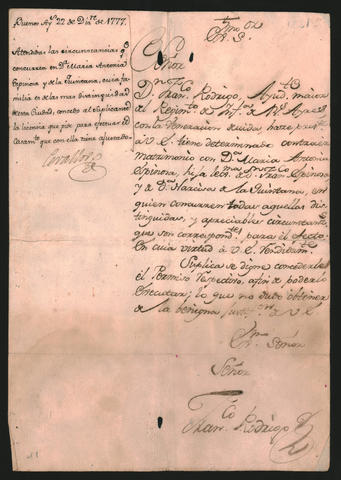 Buenos Ays. 22 de Dizre. de 1777.
Atendidas las circunstancias q.
concurren en Da. Maria Antonia
Espinosa y de la Quintana, cuia fa-
milia es de las mas distinguidas
de esta Ciudad, concedo al Suplicante
la licencia que pide para efectuar el
Casamto. que con ella tiene ajustado.
Cevallos
Exmo. Sor.
Señor
Dn. Franco. Rodrigo, Ayudte. maior
del Regimto. de Infa. de Bs. Ayres
con la Veneracion devida, haze presте.
à V.E. tiene determinado contraer
matrimonio con Da. Maria Antonia
Espinosa, hija lexma. de Dn. Franco. Espinosa
y de Da. Narcisa de la Quintana, en
quien concurren todas aquellas dis-
tinguidas, y apreciables circunstans.
que son correspondtes. para el efecto
En cuia virtud à V.E. Rendidamte.
Suplica se digne concederle
el Permiso respectivo, afin de poderlo
executar; lo que no duda obtener
de la benigna justifon. de V.E.
Exmo. Señor
Señor
Franco. Rodrigo